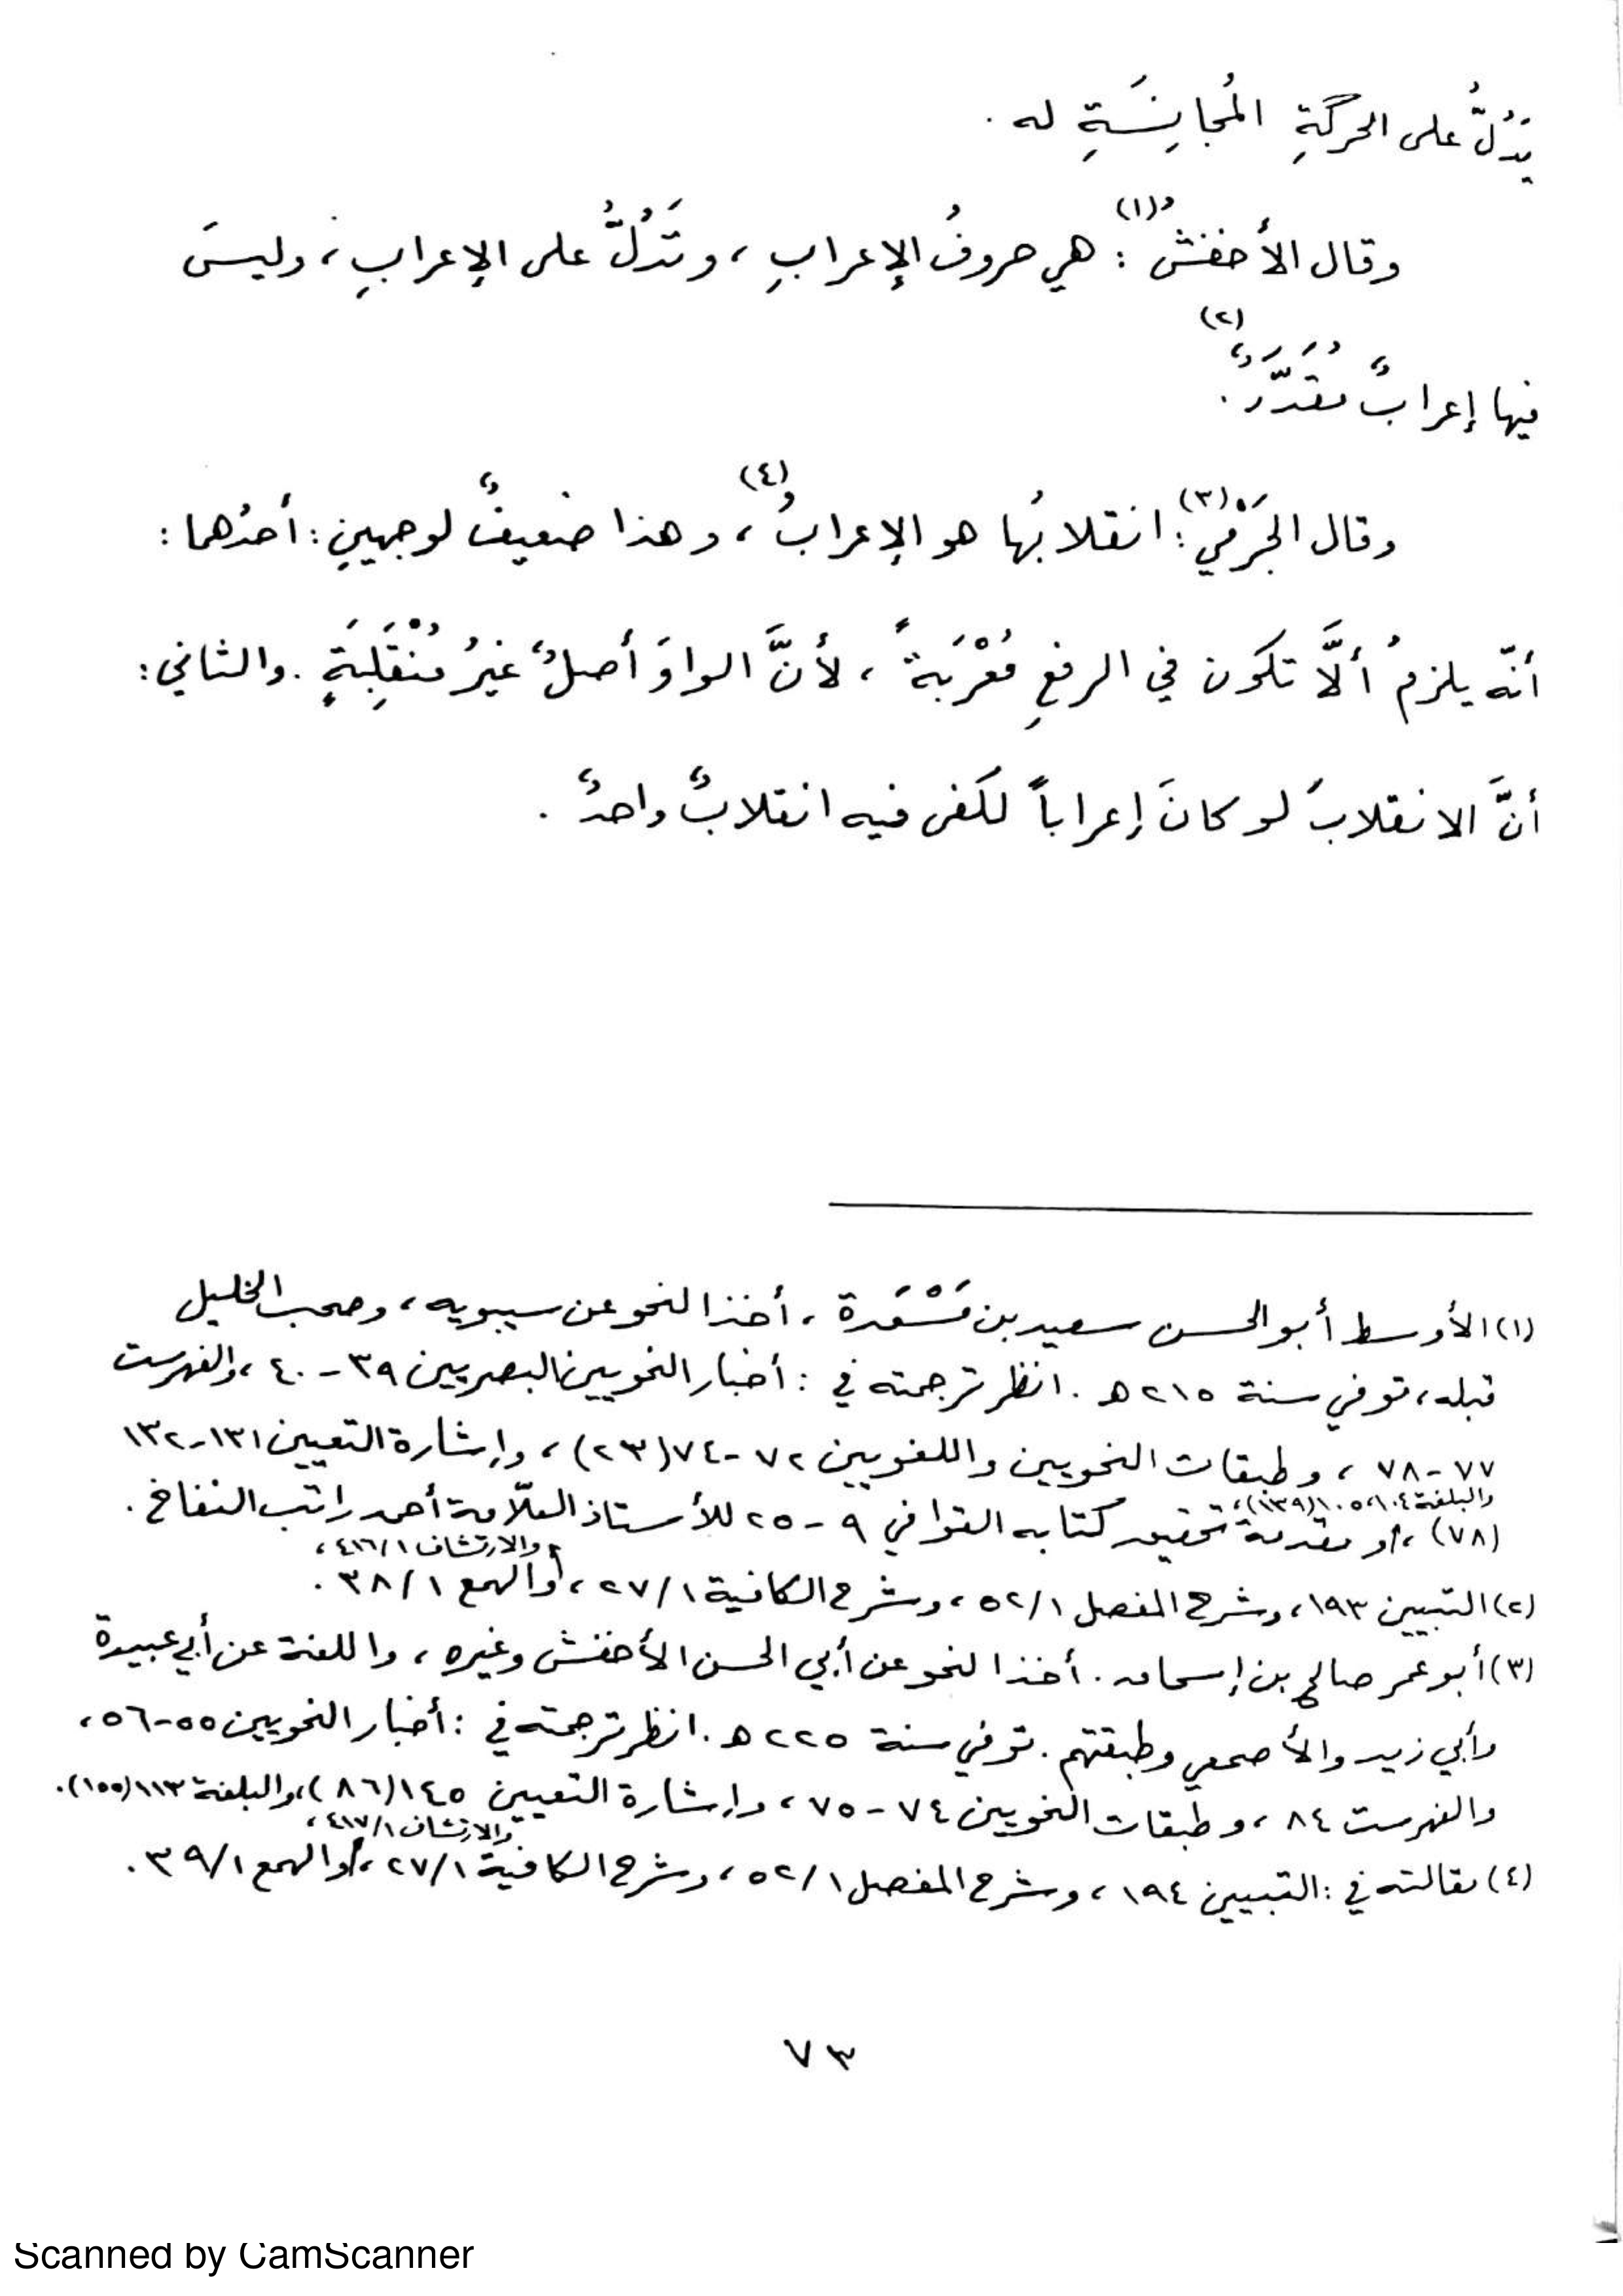 يَدُلُّ على الحركَةِ المُجانِسَةِ له .
وقال الأخفشُ (١) : هي حروفُ الإعرابِ ، وتَدُلُّ على الإعرابِ ، وليسَ
فيها إعرابٌ مُقَدَّرٌ (٢) .
وقال الجَرْمي (٣) : انقلابُها هو الإعرابُ (٤) ، وهذا ضعيفٌ لوجهينِ : أحدُهما :
أنّه يلزمُ ألَّا تكون في الرفعِ مُعْرَبةً ، لأنَّ الواوَ أصلٌ غيرُ مُنْقَلِبَةٍ . والثاني :
أنَّ الانقلابَ لو كانَ إعراباً لكفى فيه انقلابٌ واحدٌ .
(١) الأوسط أبو الحسن سعيد بن مَسْعَدة ، أخذ النحو عن سيبويه ، وصحب الخليل
قبله ، توفي سنة ٢١٥ ه . انظر ترجمته في : أخبار النحويين البصريين ٣٩ - ٤٠ ، والفهرست
٧٧ - ٧٨ ، وطبقات النحويين واللغويين ٧٢ - ٧٤ (٢٣) ، وإشارة التعيين ١٣١ - ١٣٢
والبلغة ١٠٤، ١٠٥ (١٣٩) ،
(٧٨) ، و مقدمة تحقيق كتابه القوافي ٩ - ٢٥ للأستاذ العلّامة أحمد راتب النفاخ .
والارتشاف ٤١٦/١ ،
(٢) التبيين ١٩٣ ، وشرح المفصل ٥٢/١ ، وشرح الكافية ٢٧/١ ، والهمع ٣٨/١ .
(٣) أبو عمر صالح بن إسحاق . أخذ النحو عن أبي الحسن الأخفش وغيره ، واللغة عن أبي عبيدة
وأبي زيد والأصمعي وطبقتهم . توفي سنة ٢٢٥ ه . انظر ترجمته في : أخبار النحويين ٥٥ - ٥٦ ،
والفهرست ٨٤ ، وطبقات النحويين ٧٤ - ٧٥ ، وإشارة التعيين ١٤٥ (٨٦) ، والبلغة ١١٣ (١٥٥) .
والارتشاف ٤١٧/١ ،
(٤) مقالته في : التبيين ١٩٤ ، وشرح المفصل ٥٢/١ ، وشرح الكافية ٢٧/١ ، والهمع ٣٩/١ .
٧٣
Scanned by CamScanner